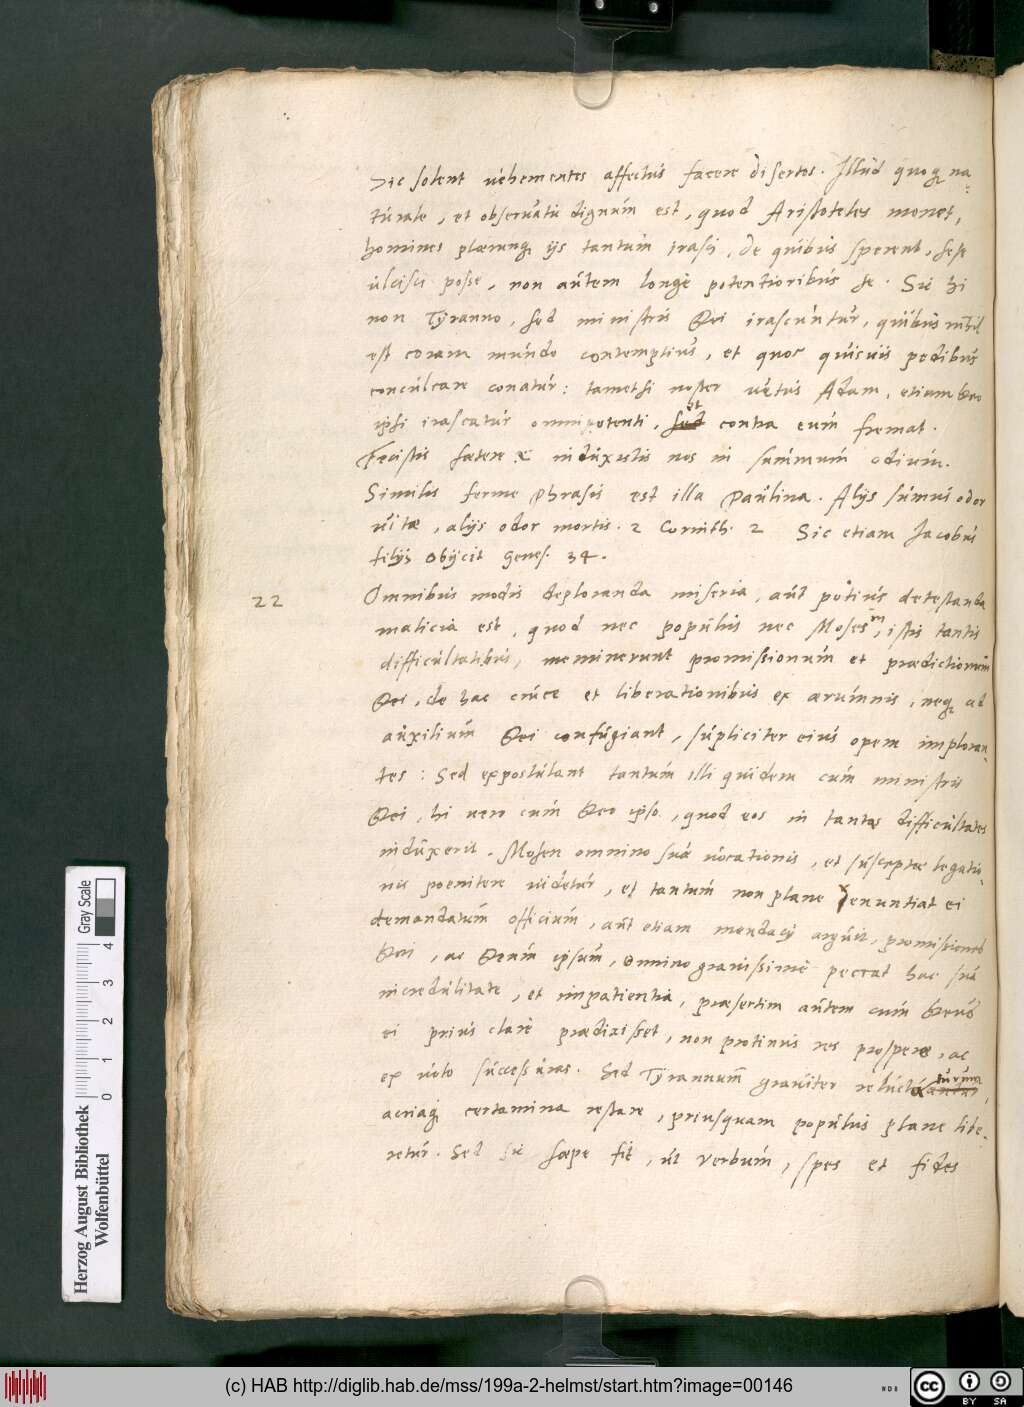 Sic solent vehementes affectus facere disertos. Illud quoq; na-
turale, et observatu dignum est, quod Aristoteles monet,
homines plærunq; ijs tantum irasci, de quibus sperent, sese
ulcisci posse, non autem longè potentioribus se. Sic hi
non Tÿranno, sed ministris Dei irascuntur, quibus nihil
est coram mundo contemptius, et quos quisuis pedibus
conculcare conatur: tametsi noster vetus Adam, etiam Deo
ipsi irascatur omnipotenti, et contra eum fremat.
Fecistis fœtere &c induxistis nos in summum odium.
Similis ferme Phrasis est illa Paulina. Alijs sumus odor
vitæ, alijs odor mortis. 2 Corinth. 2 Sic etiam Jacobus
filijs obijcit Genes. 34.
22 Omnibus modis deploranda miseria, aut potius detestanda
malicia est, quod nec populus nec Moses, in istis tantis
difficultatibus, meminerunt promissionum et prædictionum
Dei, de hac cruce et liberationibus ex ærumnis, neq; ad
auxilium Dei confugiant, supliciter eius opem imploran-
tes: Sed expostulant tantum illi quidem cum ministris
Dei, hi vero cum Deo ipso, quod eos in tantas difficultates
induxerit. Mosen omnino suæ vocationis, et susceptæ legatio-
nis poenitere videtur, et tantum non plane renuntiat ei
demandatum officium, aut etiam mendacij arguit, promissiones
Dei, ac Deum ipsum, omnino grauissimè peccat hac sua
incredulitate, et impatientia, præsertim autem cum Deus
ei prius clarè prædixisset, non protinus res prospere, ac
ex voto successuras. Sed Tÿrannum grauiter reluctaturum,
acriaq; certamina restare, priusquam populus plane libe-
retur. Sed sic sæpe fit, ut verbum, spes et fides
Herzog August Bibliothek
Wolfenbüttel
Gray Scale
0 1 2 3 4
(c) HAB http://diglib.hab.de/mss/199a-2-helmst/start.htm?image=00146
cc BY SA